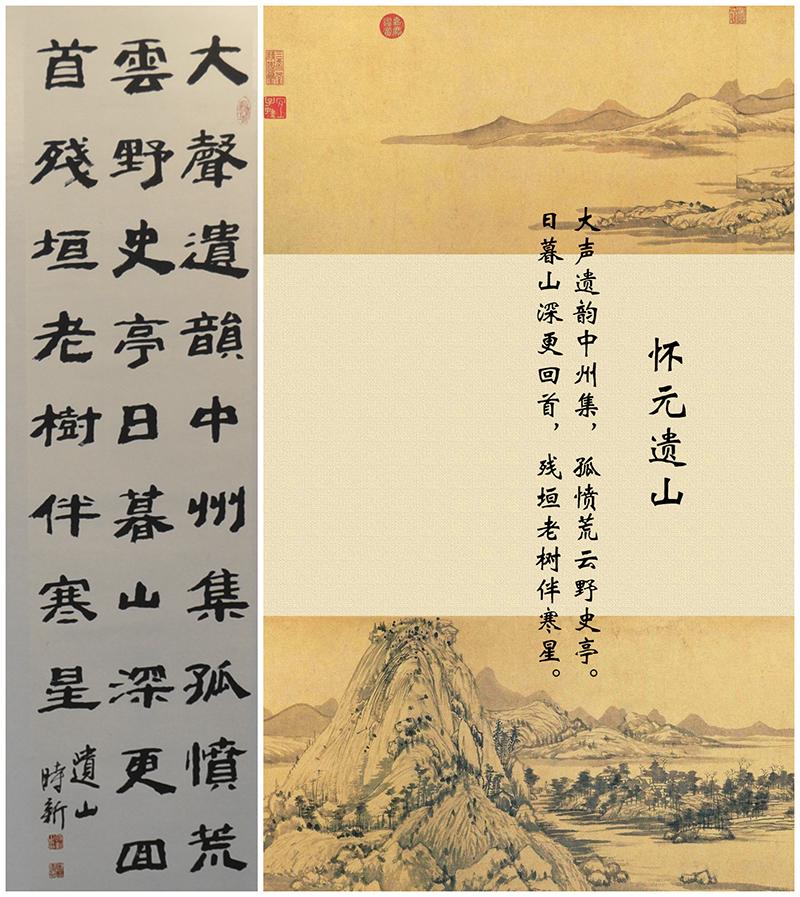 大聲遺韻中州集孤憤荒
雲野史亭日暮山深更回
首殘垣老樹伴寒星
遺山
時新
怀元遗山
大声遗韵中州集，孤愤荒云野史亭。
日暮山深更回首，残垣老树伴寒星。